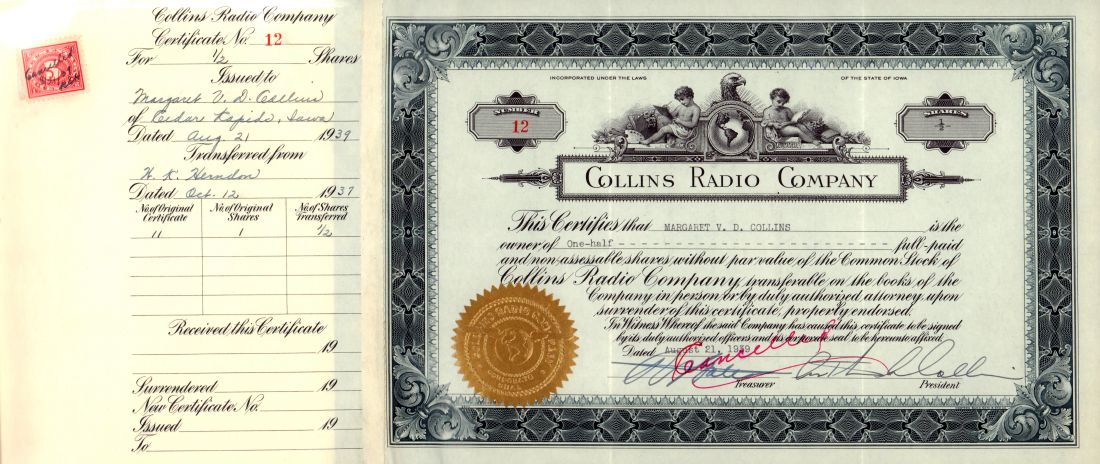 Collins Radio Company
Certificate No. 12
For 1/2 Shares
Issued to
Margaret V. D. Collins
of Cedar Rapids, Iowa
Dated Aug 21 1939
Transferred from
H. K. Herndon
Dated Oct. 12 1937
No. of Original Certificate No. of Original Shares No. of Shares Transferred
11 1 1/2
Received this Certificate
19
Surrendered 19
New Certificate No.
Issued 19
To
INCORPORATED UNDER THE LAWS OF THE STATE OF IOWA
NUMBER
12
SHARES
1/2
COLLINS RADIO COMPANY
This Certifies that MARGARET V. D. COLLINS is the
owner of One-half - - - - - - - - - - - - - - - - - - - - - - - full-paid
and non-assessable shares without par value of the Common Stock of
Collins Radio Company, transferable on the books of the
Company in person or by duly authorized attorney upon
surrender of this certificate, properly endorsed.
In Witness Whereof the said Company has caused this certificate to be signed
by its duly authorized officers and its corporate seal to be hereunto affixed.
Dated August 21, 1939
Cancelled
Treasurer President